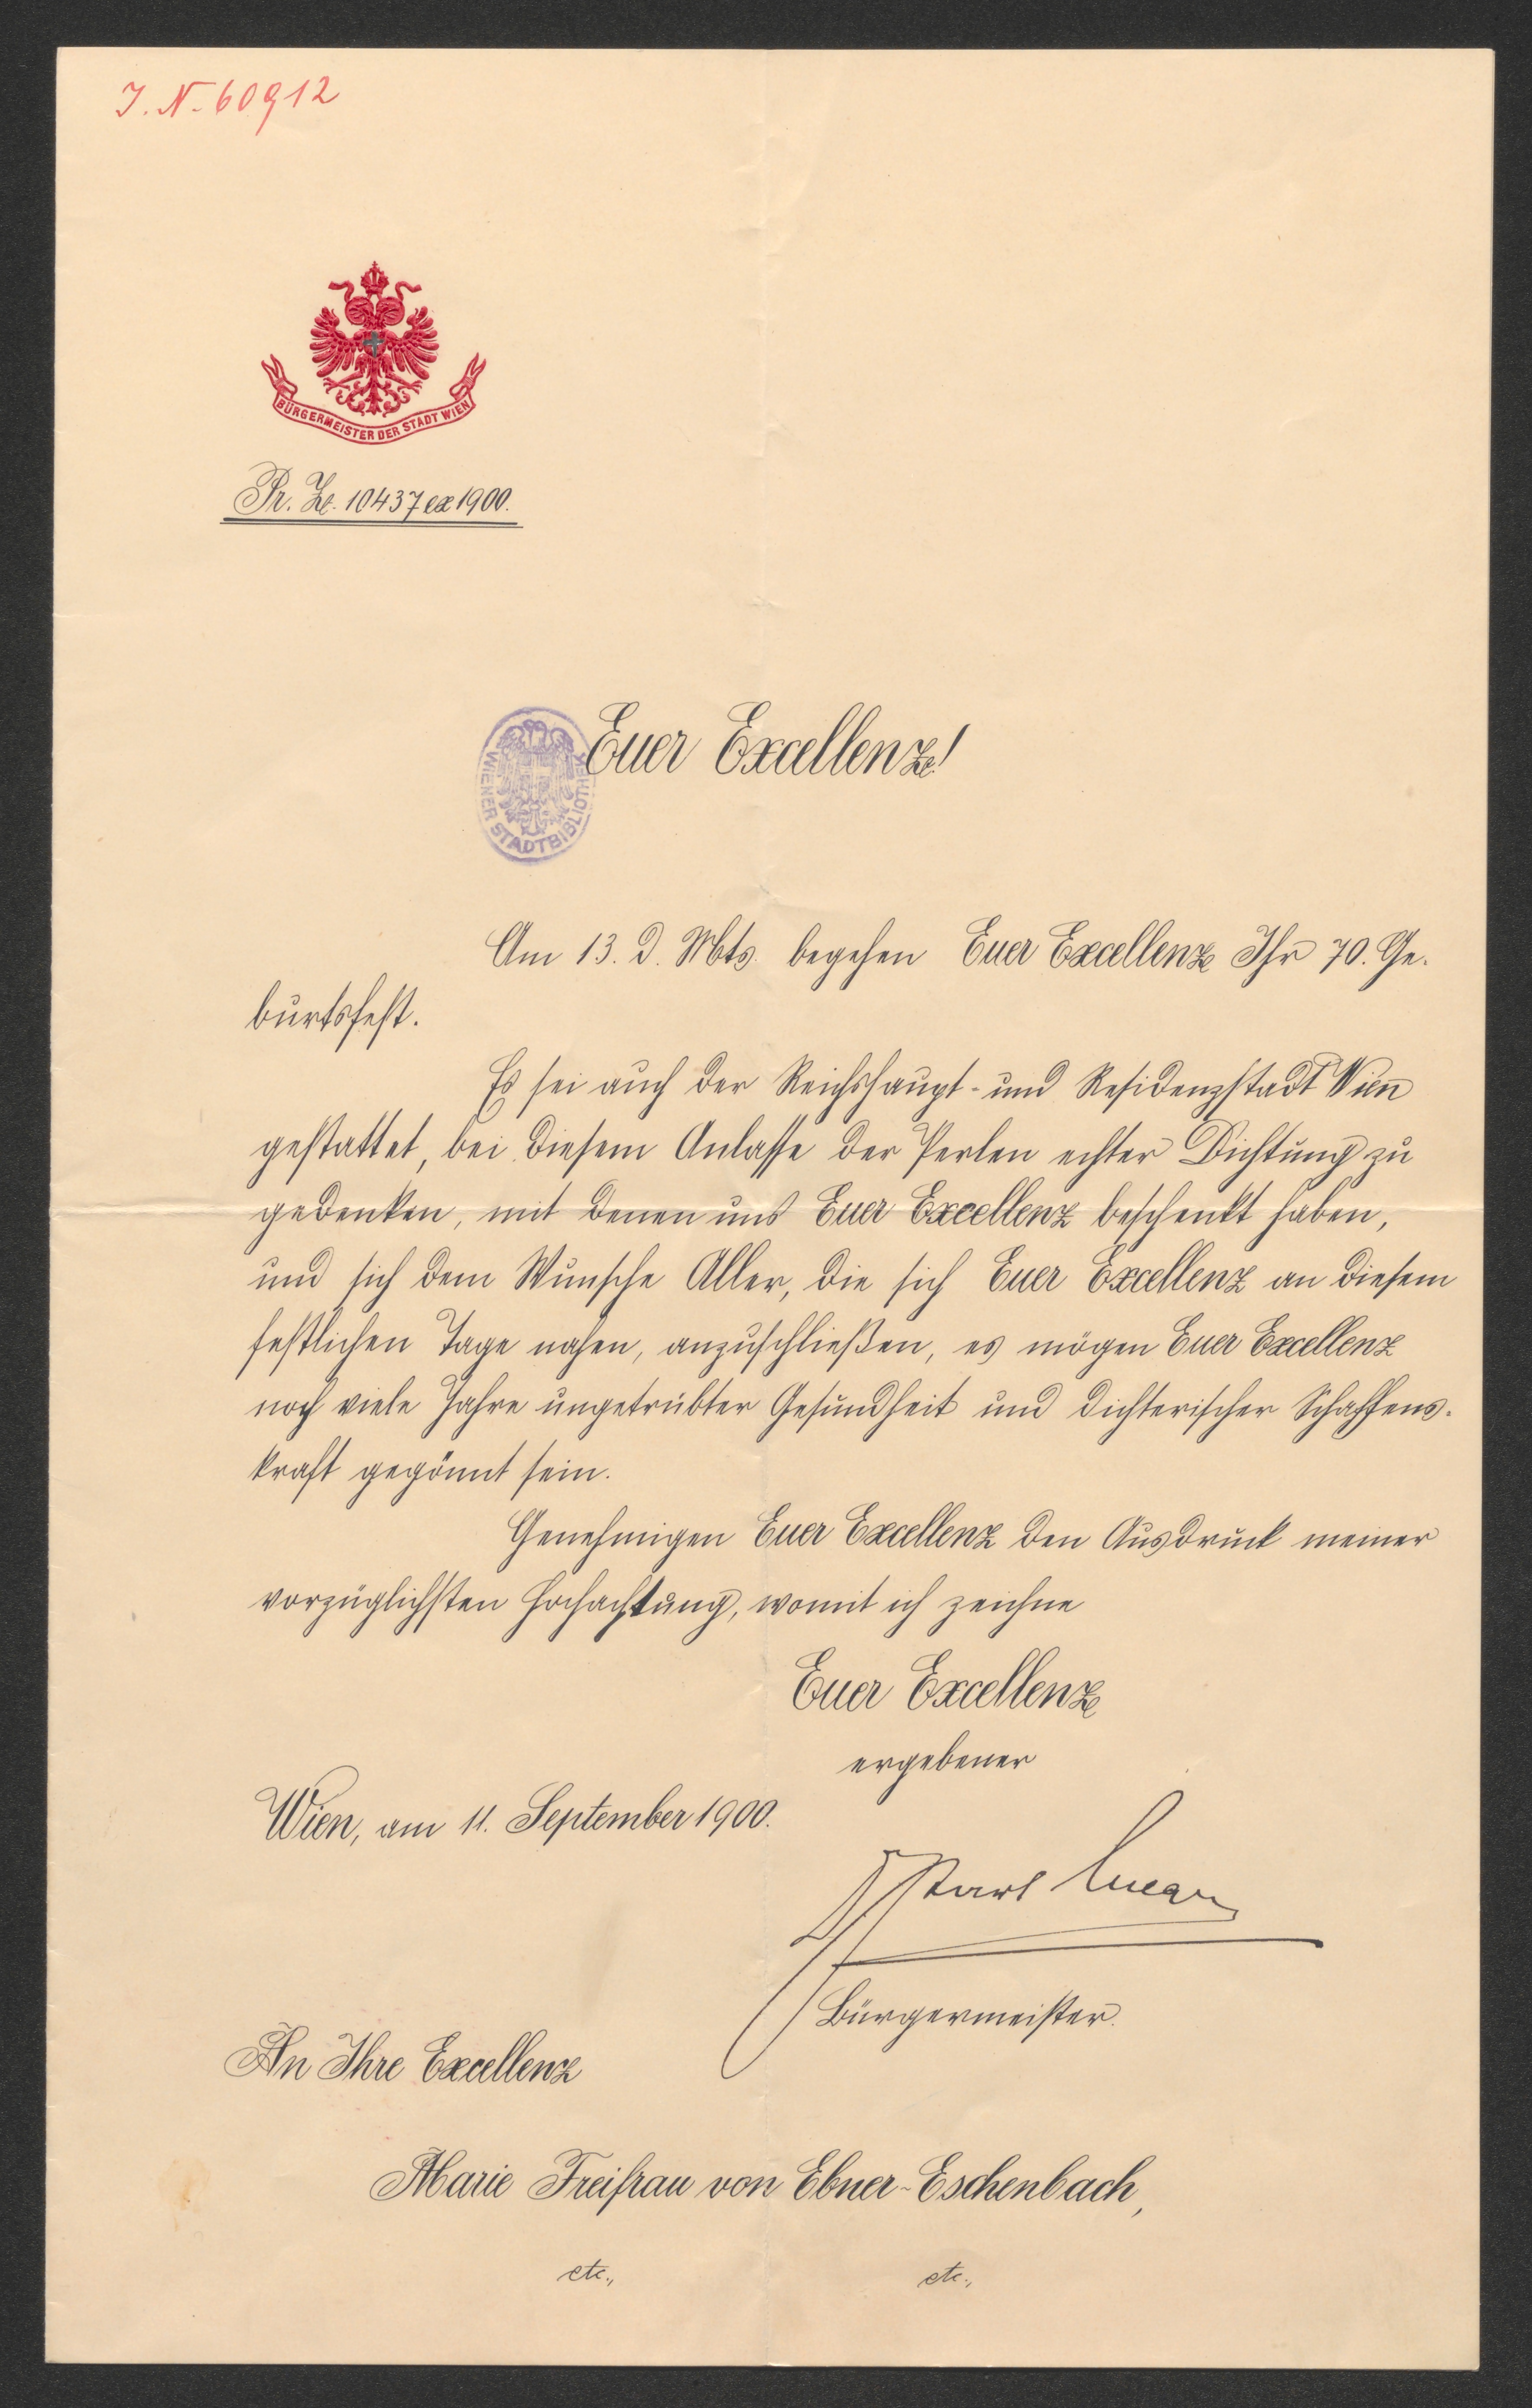 J. N. 60912
BÜRGERMEISTER DER STADT WIEN
Pr. Ze. 10437 ex 1900.
Euer Excellenz!
WIENER STADTBIBLIOTHEK
Am 13. d. Mts. begehen Euer Excellenz Ihr 70. Ge-
burtsfest.
Es sei auch der Reichshaupt- und Residenzstadt Wien
gestattet, bei diesem Anlasse der Perlen echter Dichtung zu
gedenken, mit denen uns Euer Excellenz beschenkt haben,
und sich dem Wunsche Aller, die sich Euer Excellenz an diesem
festlichen Tage nahen, anzuschließen, es mögen Euer Excellenz
noch viele Jahre ungetrübter Gesundheit und dichterischer Schaffens-
kraft gegönnt sein.
Genehmigen Euer Excellenz den Ausdruck meiner
vorzüglichsten Hochachtung, womit ich zeichne
Euer Excellenz
ergebener
Wien, am 11. September 1900.
Dr Karl Lueger
Bürgermeister.
An Ihre Excellenz
Marie Freifrau von Ebner-Eschenbach,
etc., etc.,